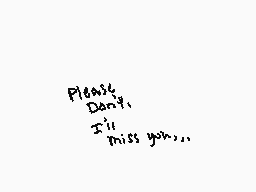 Please,
Don't.
I'll
miss you...